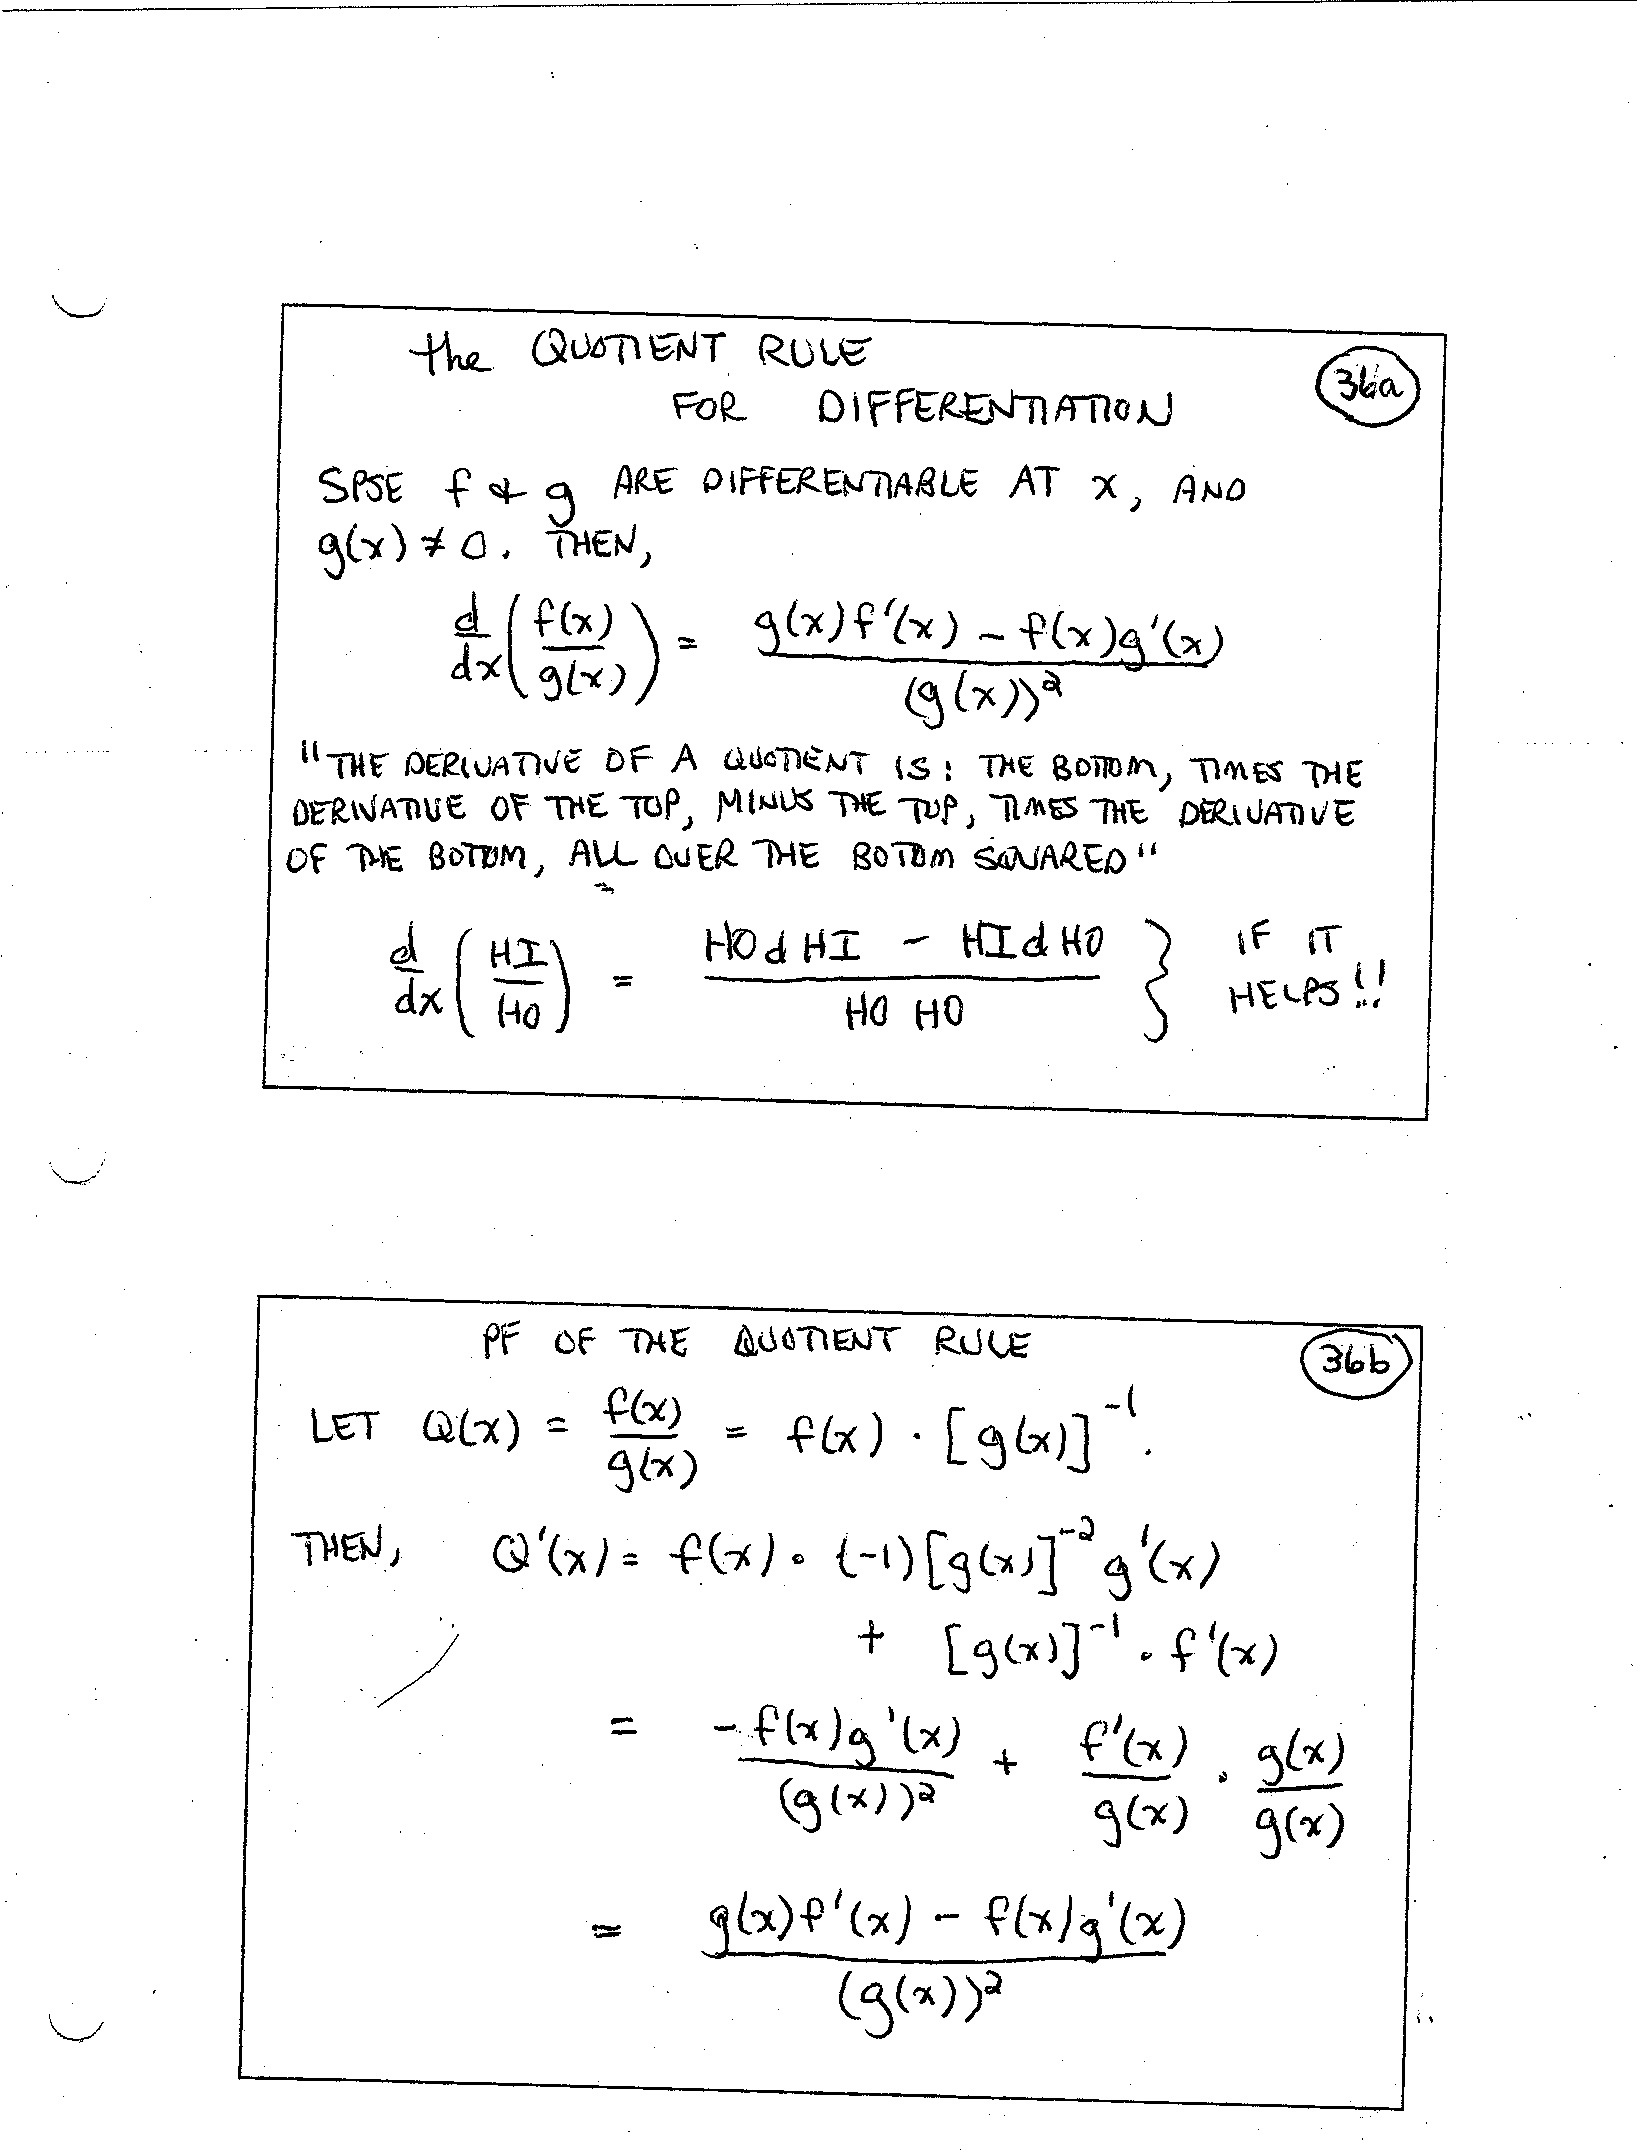 the QUOTIENT RULE
FOR DIFFERENTIATION
36a
SPSE f & g ARE DIFFERENTIABLE AT x, AND
g(x) ≠ 0. THEN,
d/dx (f(x)/g(x)) = (g(x)f'(x) - f(x)g'(x))/(g(x))²
"THE DERIVATIVE OF A QUOTIENT IS: THE BOTTOM, TIMES THE
DERIVATIVE OF THE TOP, MINUS THE TOP, TIMES THE DERIVATIVE
OF THE BOTTOM, ALL OVER THE BOTTOM SQUARED"
d/dx (HI/HO) = (HO d HI - HI d HO)/(HO HO) } IF IT
HELPS!!
PF OF THE QUOTIENT RULE
36b
LET Q(x) = f(x)/g(x) = f(x) · [g(x)]⁻¹.
THEN, Q'(x) = f(x) · (-1)[g(x)]⁻² g'(x)
+ [g(x)]⁻¹ · f'(x)
= -f(x)g'(x)/(g(x))² + f'(x)/g(x) · g(x)/g(x)
= (g(x)f'(x) - f(x)g'(x))/(g(x))²